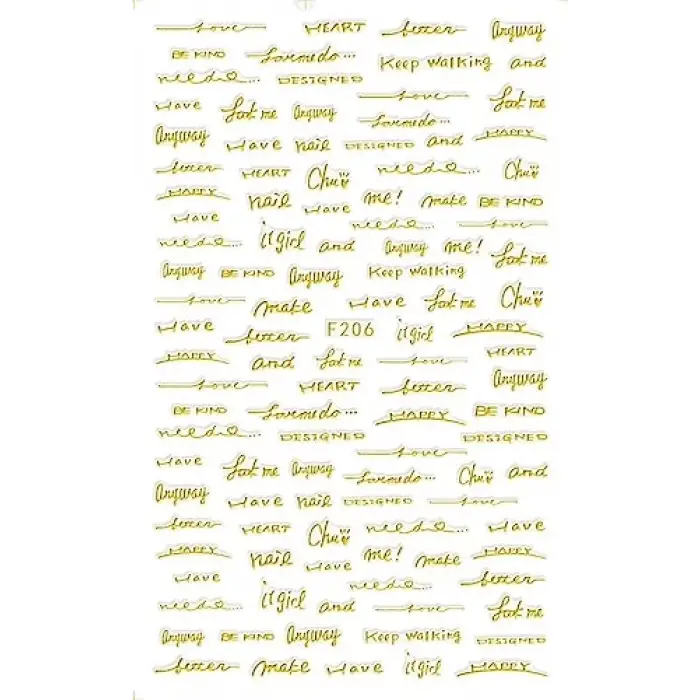 Love HEART better Anyway
BE KIND Keep walking and
need... DESIGNED
Love
Have Look me Anyway Look me
Anyway Have nail DESIGNED and HAPPY
better HEART Chu need... better
HAPPY nail Have me! make BE KIND
Have need...
need... it girl and Anyway me! Look me
Anyway BE KIND Anyway Keep walking
Love make Have Look me Chu
Have better F206 it girl HAPPY
HAPPY and Look me Love HEART
Love HEART better Anyway
BE KIND HAPPY BE KIND
need... DESIGNED DESIGNED
Love
Have Look me Anyway Chu and
Anyway Have nail DESIGNED Love
better HEART Chu need... Have
HAPPY nail Have me! make HAPPY
Have need... better
need... it girl and Love Look me
Anyway BE KIND Anyway Keep walking DESIGNED
better make Have it girl HAPPY